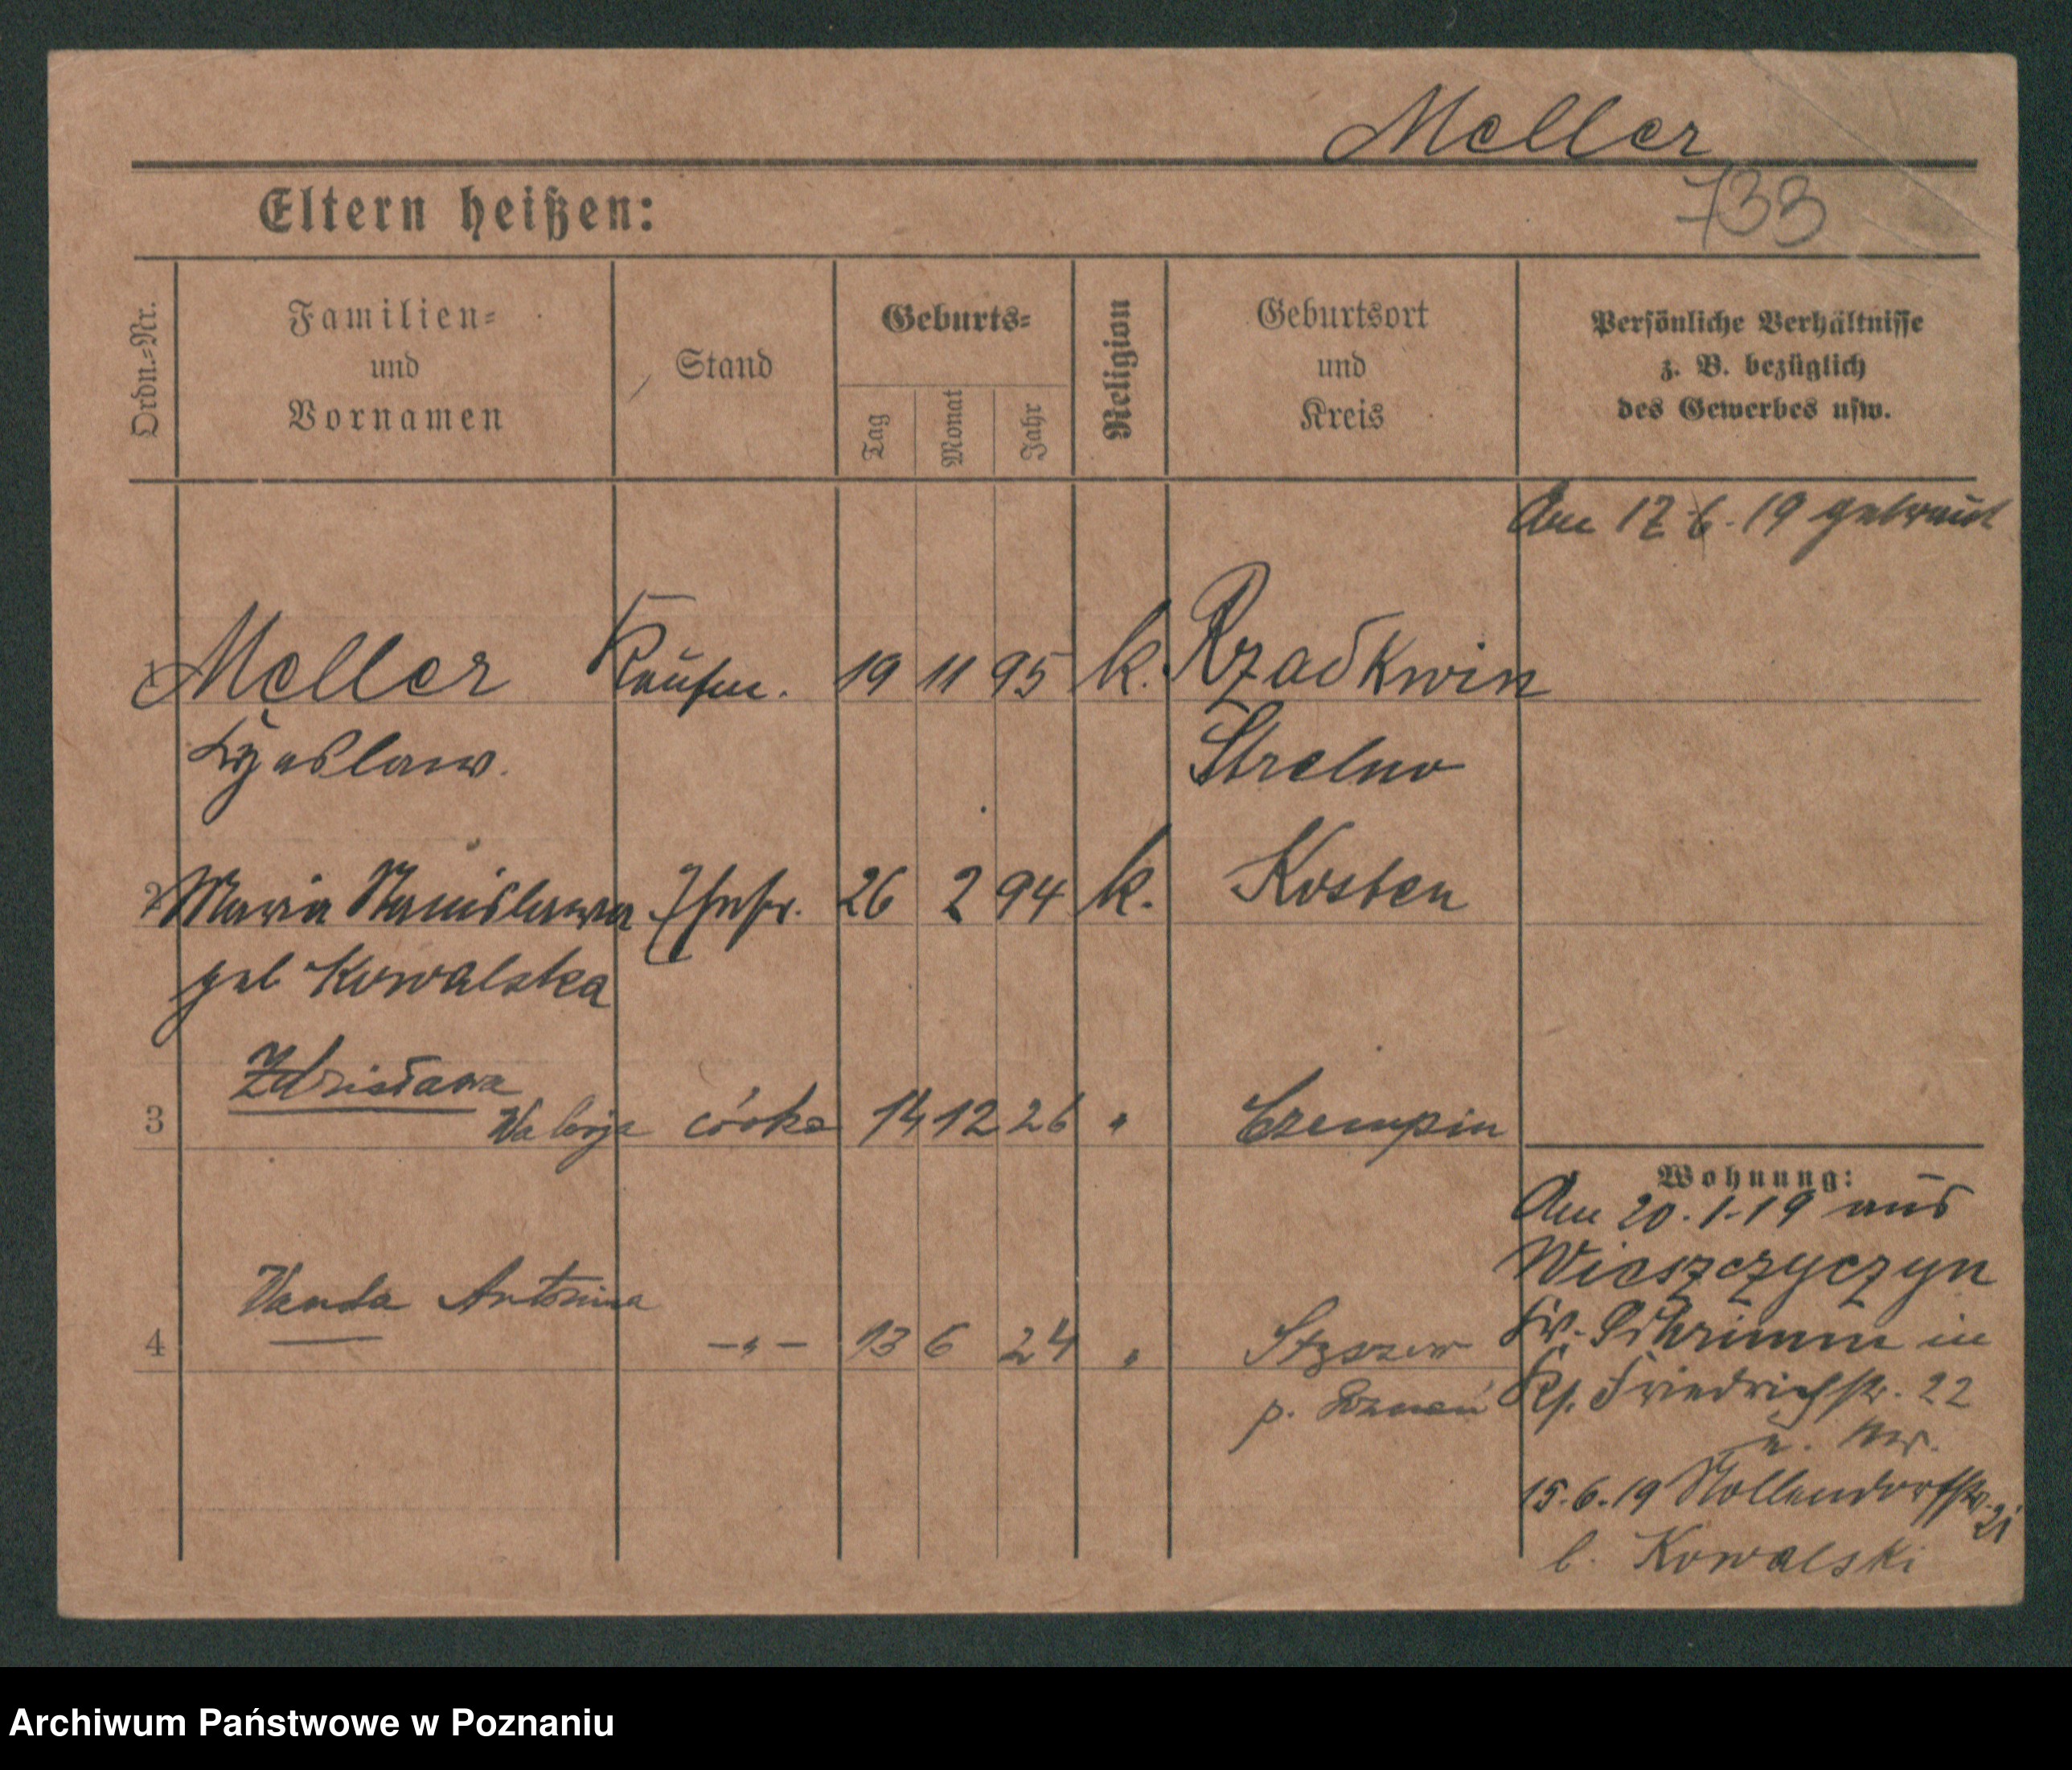 Meller
733
Eltern heißen:
Ordn.=Nr.
Familien=
und
Vornamen
Stand
Geburts=
Tag
Monat
Jahr
Religion
Geburtsort
und
Kreis
Persönliche Verhältnisse
z. B. bezüglich
des Gewerbes usw.
Am 17.6.19 getraut
1 Meller Kaufm. 19 11 95 k. Rzadkwin
Strelno
2 Maria Stanislawa Ehefr. 26 2 94 k. Kosten
geb Kowalska
Zdzisława
3 Walerja córka 14 12 26 " Czempin
Wohnung:
Am 20.1.19 aus
Wieszczyczyn
Kr. Schrimm in
Friedrichstr. 22
Wanda Antonina
4 -"- 13 6 24 " Stęszew
p. Poznań
15.6.19 Nollendorfstr. 21
b. Kowalski
Archiwum Państwowe w Poznaniu